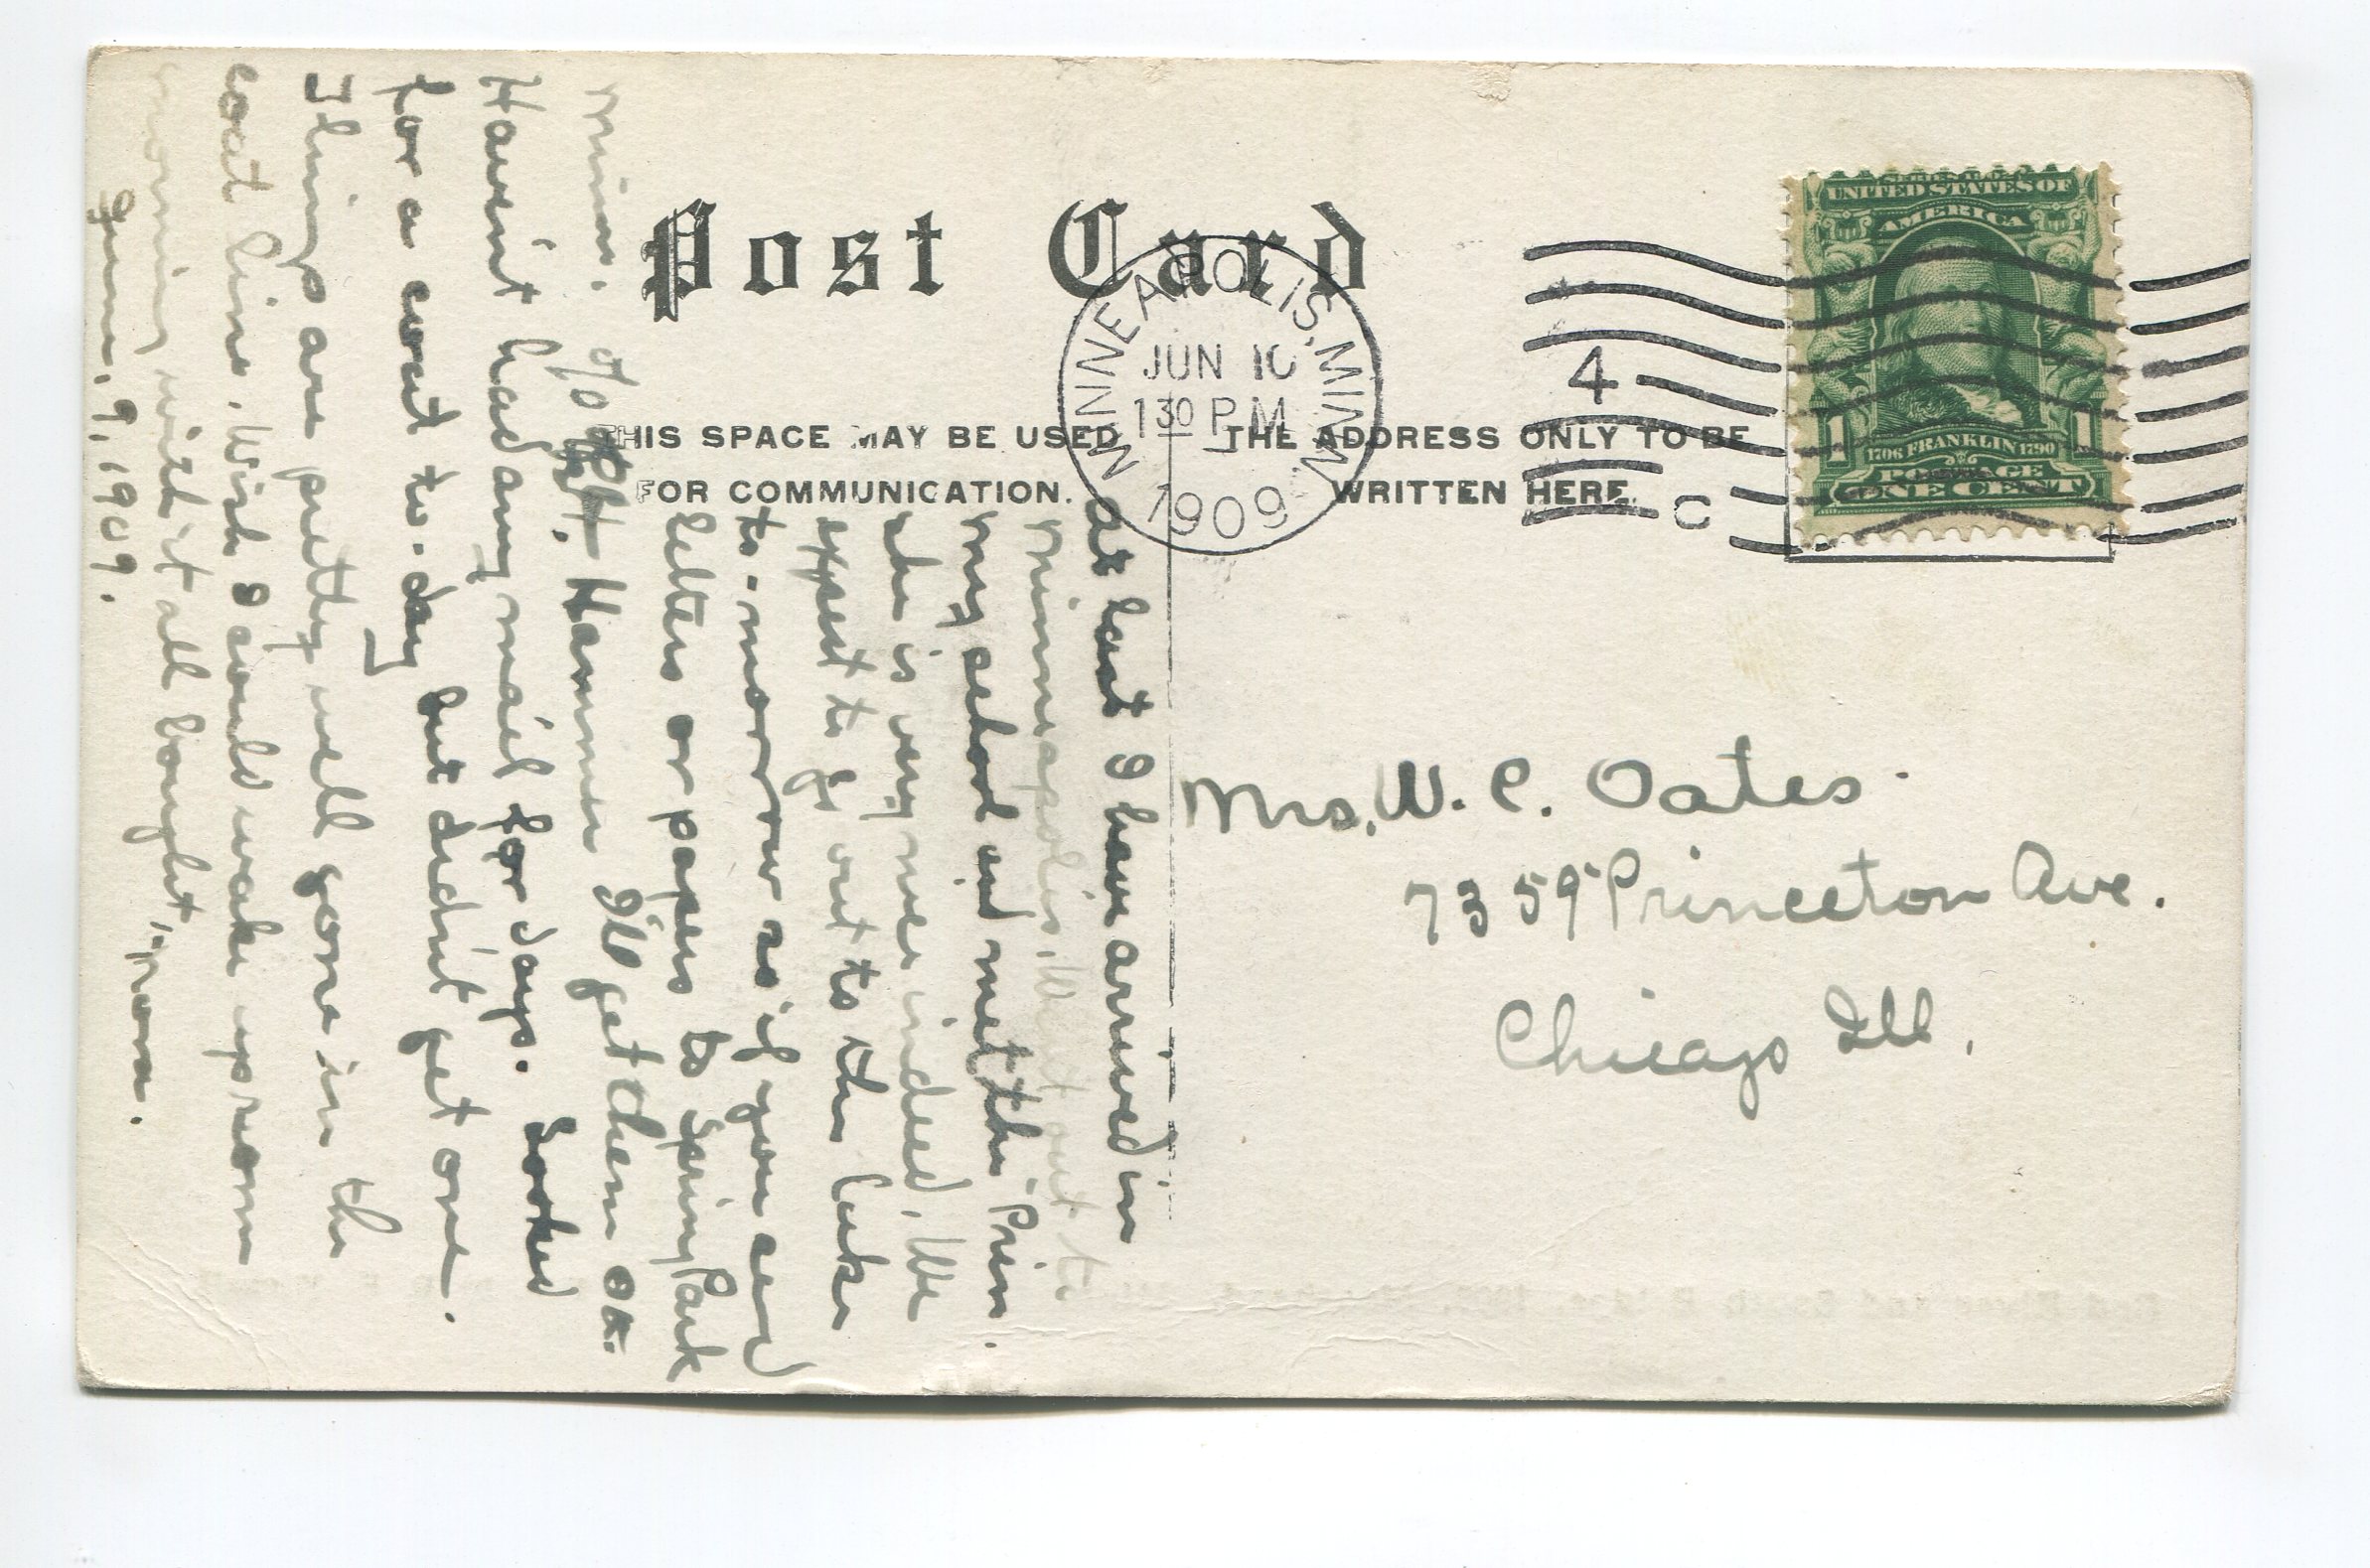 Post Card
THIS SPACE MAY BE USED
FOR COMMUNICATION.
THE ADDRESS ONLY TO BE
WRITTEN HERE.
MINNEAPOLIS, MINN.
JUN 10
1 30 P.M.
1909
4
C
UNITED STATES OF
AMERICA
1 1
1706 FRANKLIN 1790
POSTAGE
ONE CENT
Mrs. W. C. Oates.
7359 Princeton Ave.
Chicago Ill.
At last I have arrived in
Minneapolis, Went out to
my school and met the Prin.
she is very nice indeed, We
expect to go out to the lake
to-morrow so if you send
letters or papers to Spring Park
Minn. c/o Hammer I'll get them OK.
Havent had any mail for days. Looked
for a coat to-day but didn't get one.
Things are pretty well gone in the
coat line. Wish I could wake up some
morning with it all bought, Nora.
June, 9, 1909.